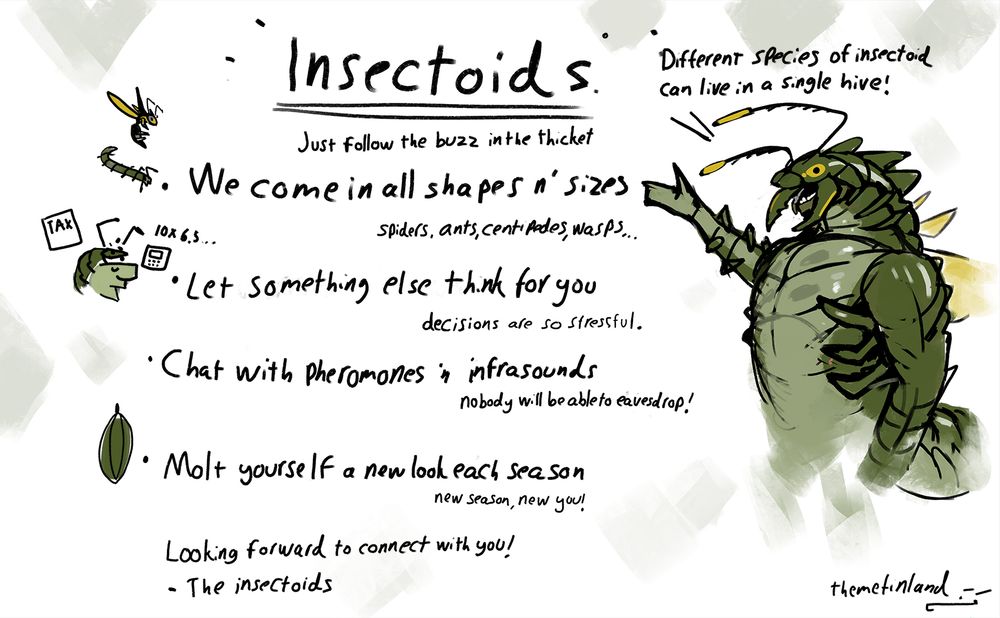 Insectoids.
Different species of insectoid
can live in a single hive!
Just follow the buzz in the thicket
• We come in all shapes n' sizes
spiders, ants, centipedes, wasps...
TAX
10x6,5...
• Let something else think for you
decisions are so stressful.
• Chat with pheromones 'n infrasounds
nobody will be able to eavesdrop!
• Molt yourself a new look each season
new season, new you!
Looking forward to connect with you!
- The insectoids
themefinland